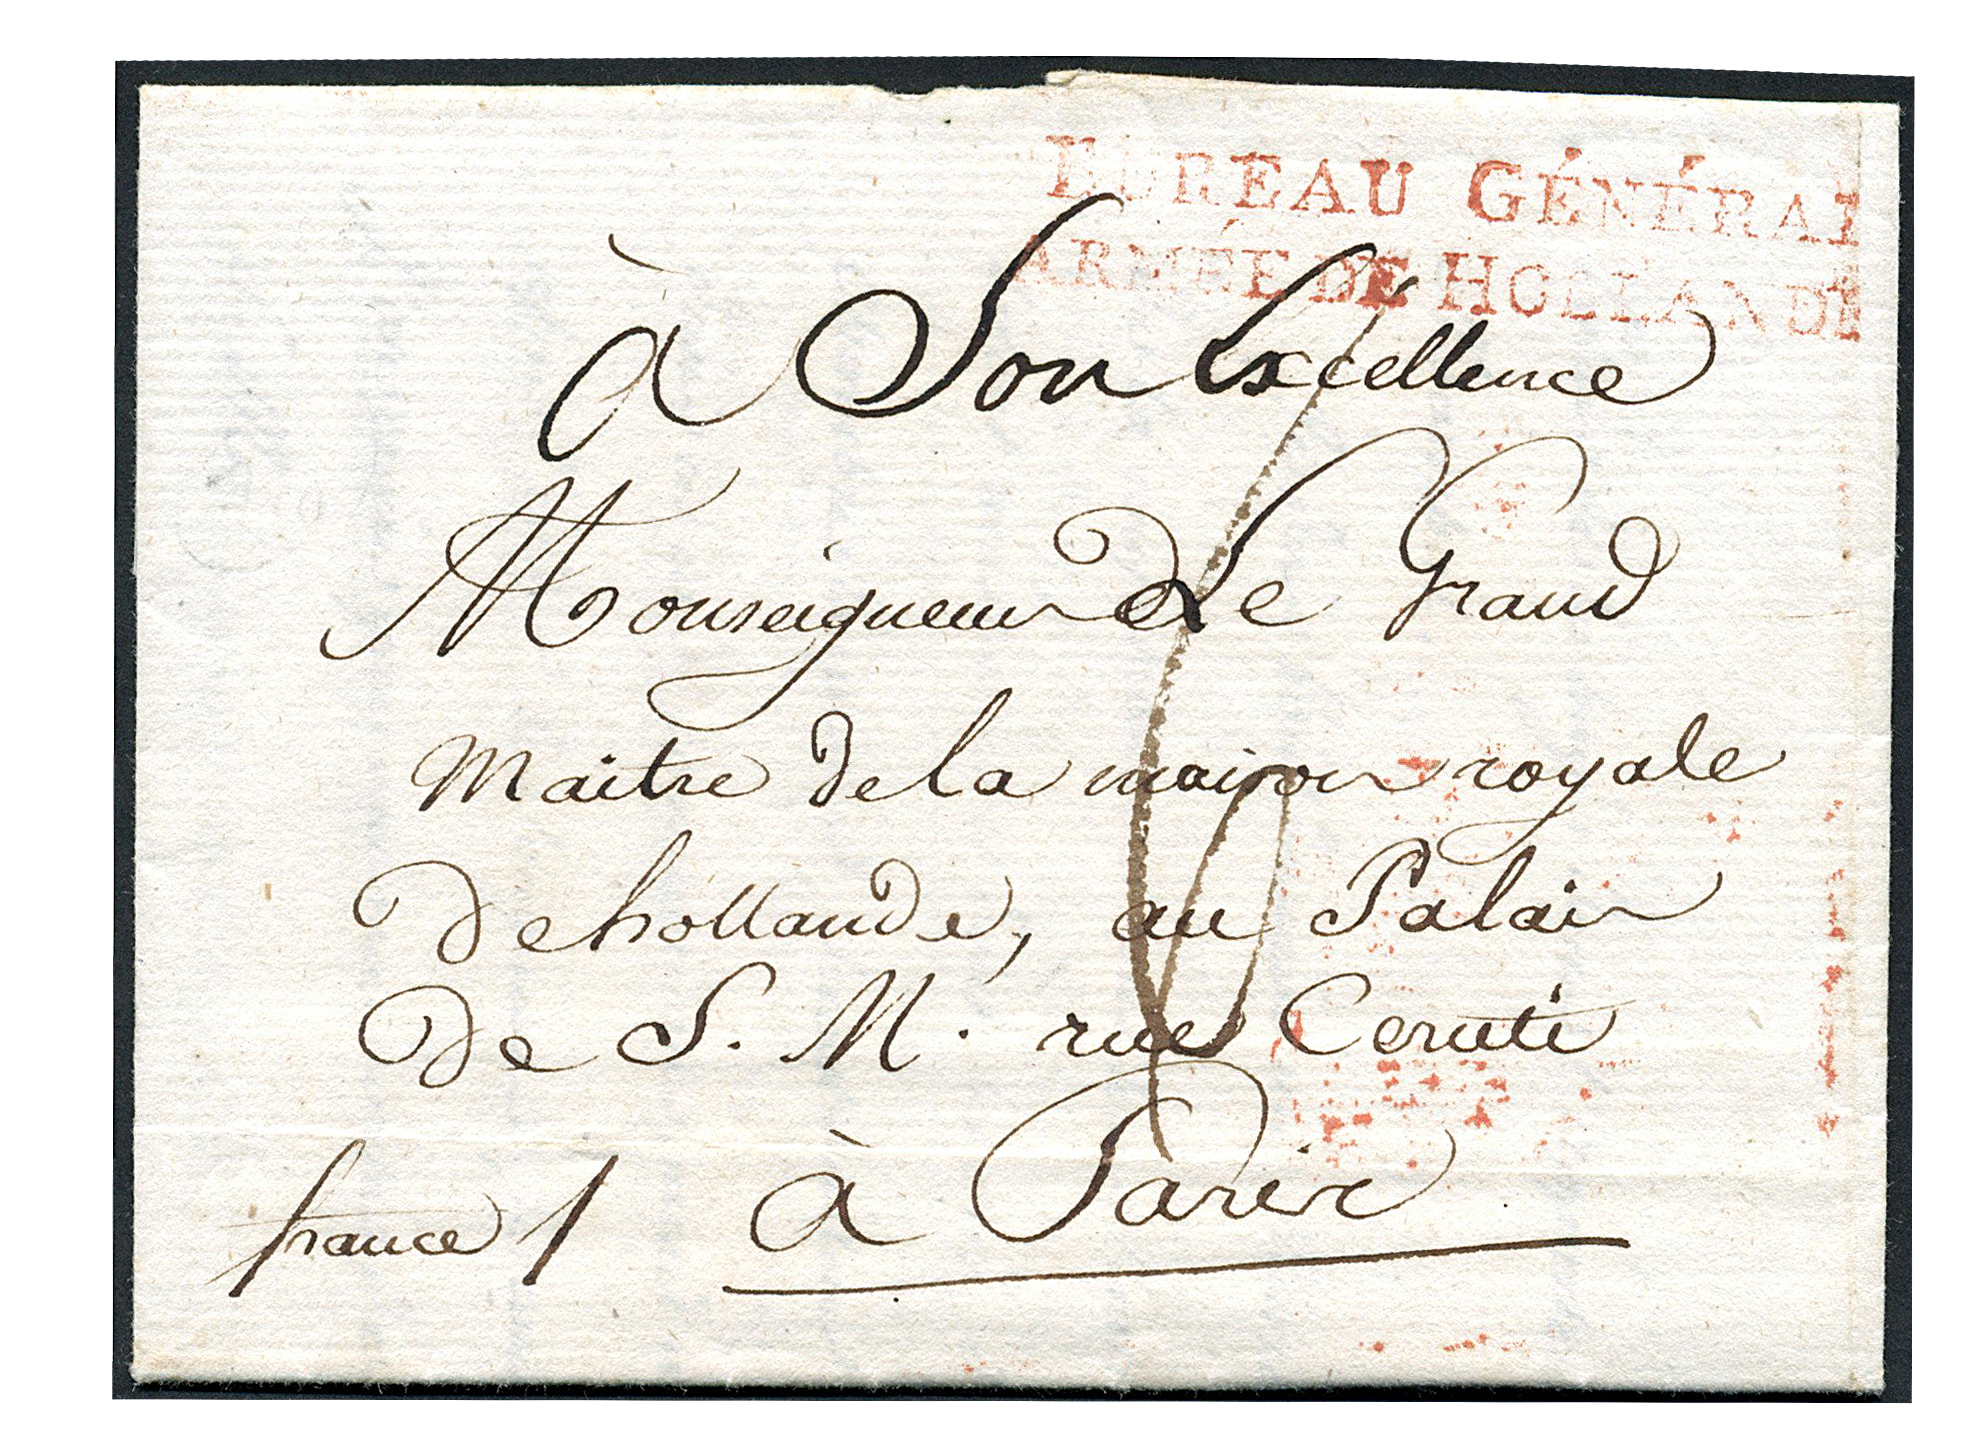 BUREAU GÉNÉRAL
ARMÉE DE HOLLANDE
à Son Excellence
Monseigneur Le Grand
Maitre de la maison royale
de hollande, au Palais
de S. M. rue Ceruti
france à Paris